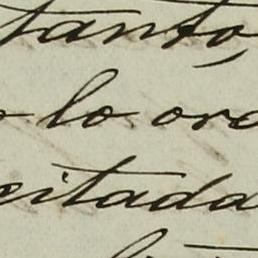 tanto,
lo ord
citada